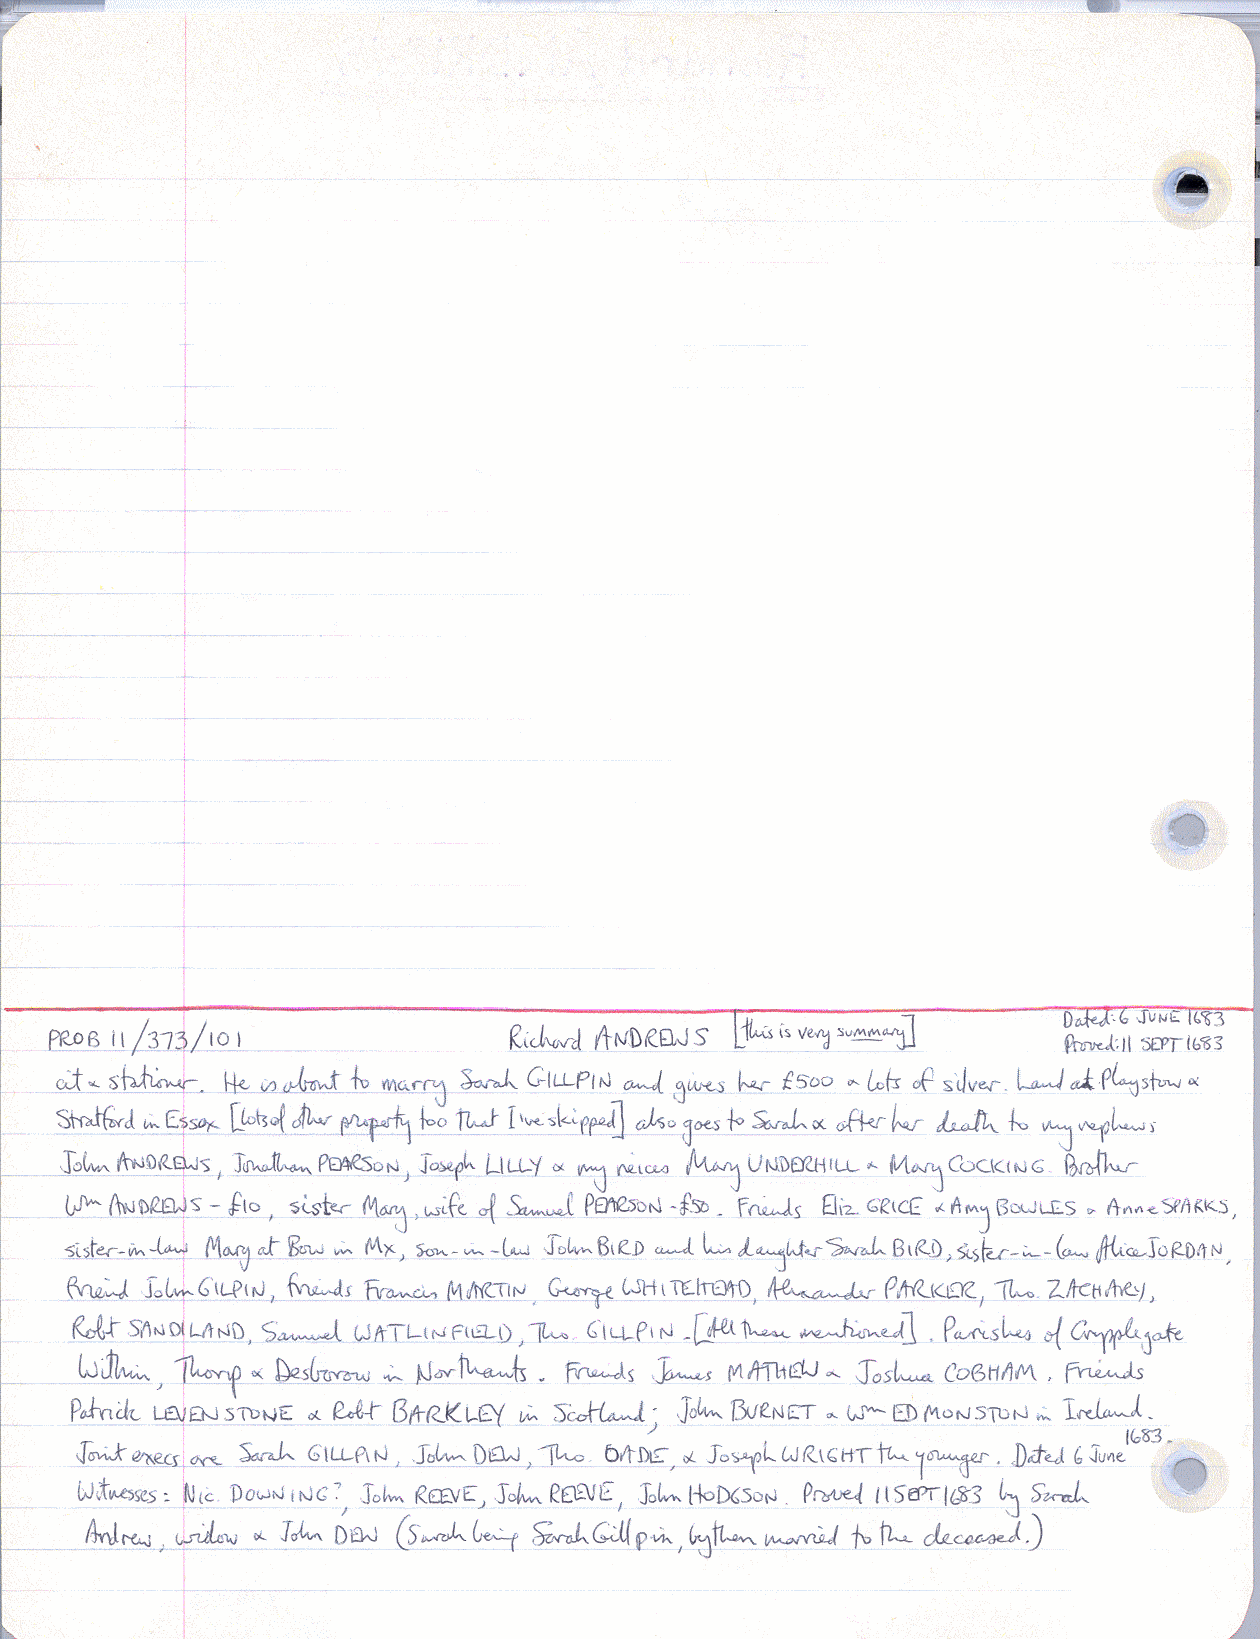 PROB 11/373/101 Richard ANDREWS [this is very summary] Dated: 6 JUNE 1683
Proved: 11 SEPT 1683
cit & stationer. He is about to marry Sarah GILLPIN and gives her £500 & lots of silver. Land at Playstow &
Stratford in Essex [lots of other property too that I've skipped] also goes to Sarah & after her death to my nephews
John ANDREWS, Jonathan PEARSON, Joseph LILLY & my neices Mary UNDERHILL & Mary COCKING. Brother
Wm ANDREWS - £10, sister Mary, wife of Samuel PEARSON - £50. Friends Eliz GRICE & Amy BOWLES & Anne SPARKS,
sister-in-law Mary at Bow in Mx, son-in-law John BIRD and his daughter Sarah BIRD, sister-in-law Alice JORDAN,
friend John GILPIN, friends Francis MARTIN, George WHITEHEAD, Alexander PARKER, Tho. ZACHARY,
Robt SANDILAND, Samuel WATLINFIELD, Tho. GILLPIN - [All these mentioned]. Parishes of Crypplegate
Within, Thorp & Desborow in Northants. Friends James MATHEW & Joshua COBHAM, Friends
Patrick LEVENSTONE & Robt BARKLEY in Scotland; John BURNET & Wm EDMONSTON in Ireland.
Joint execs are Sarah GILLPIN, John DEW, Tho. DADE, & Joseph WRIGHT the younger. Dated 6 June 1683.
Witnesses: Nic. DOWNING?, John REEVE, John REEVE, John HODGSON. Proved 11 SEPT 1683 by Sarah
Andrew, widow & John DEW (Sarah being Sarah Gillpin, by then married to the deceased.)